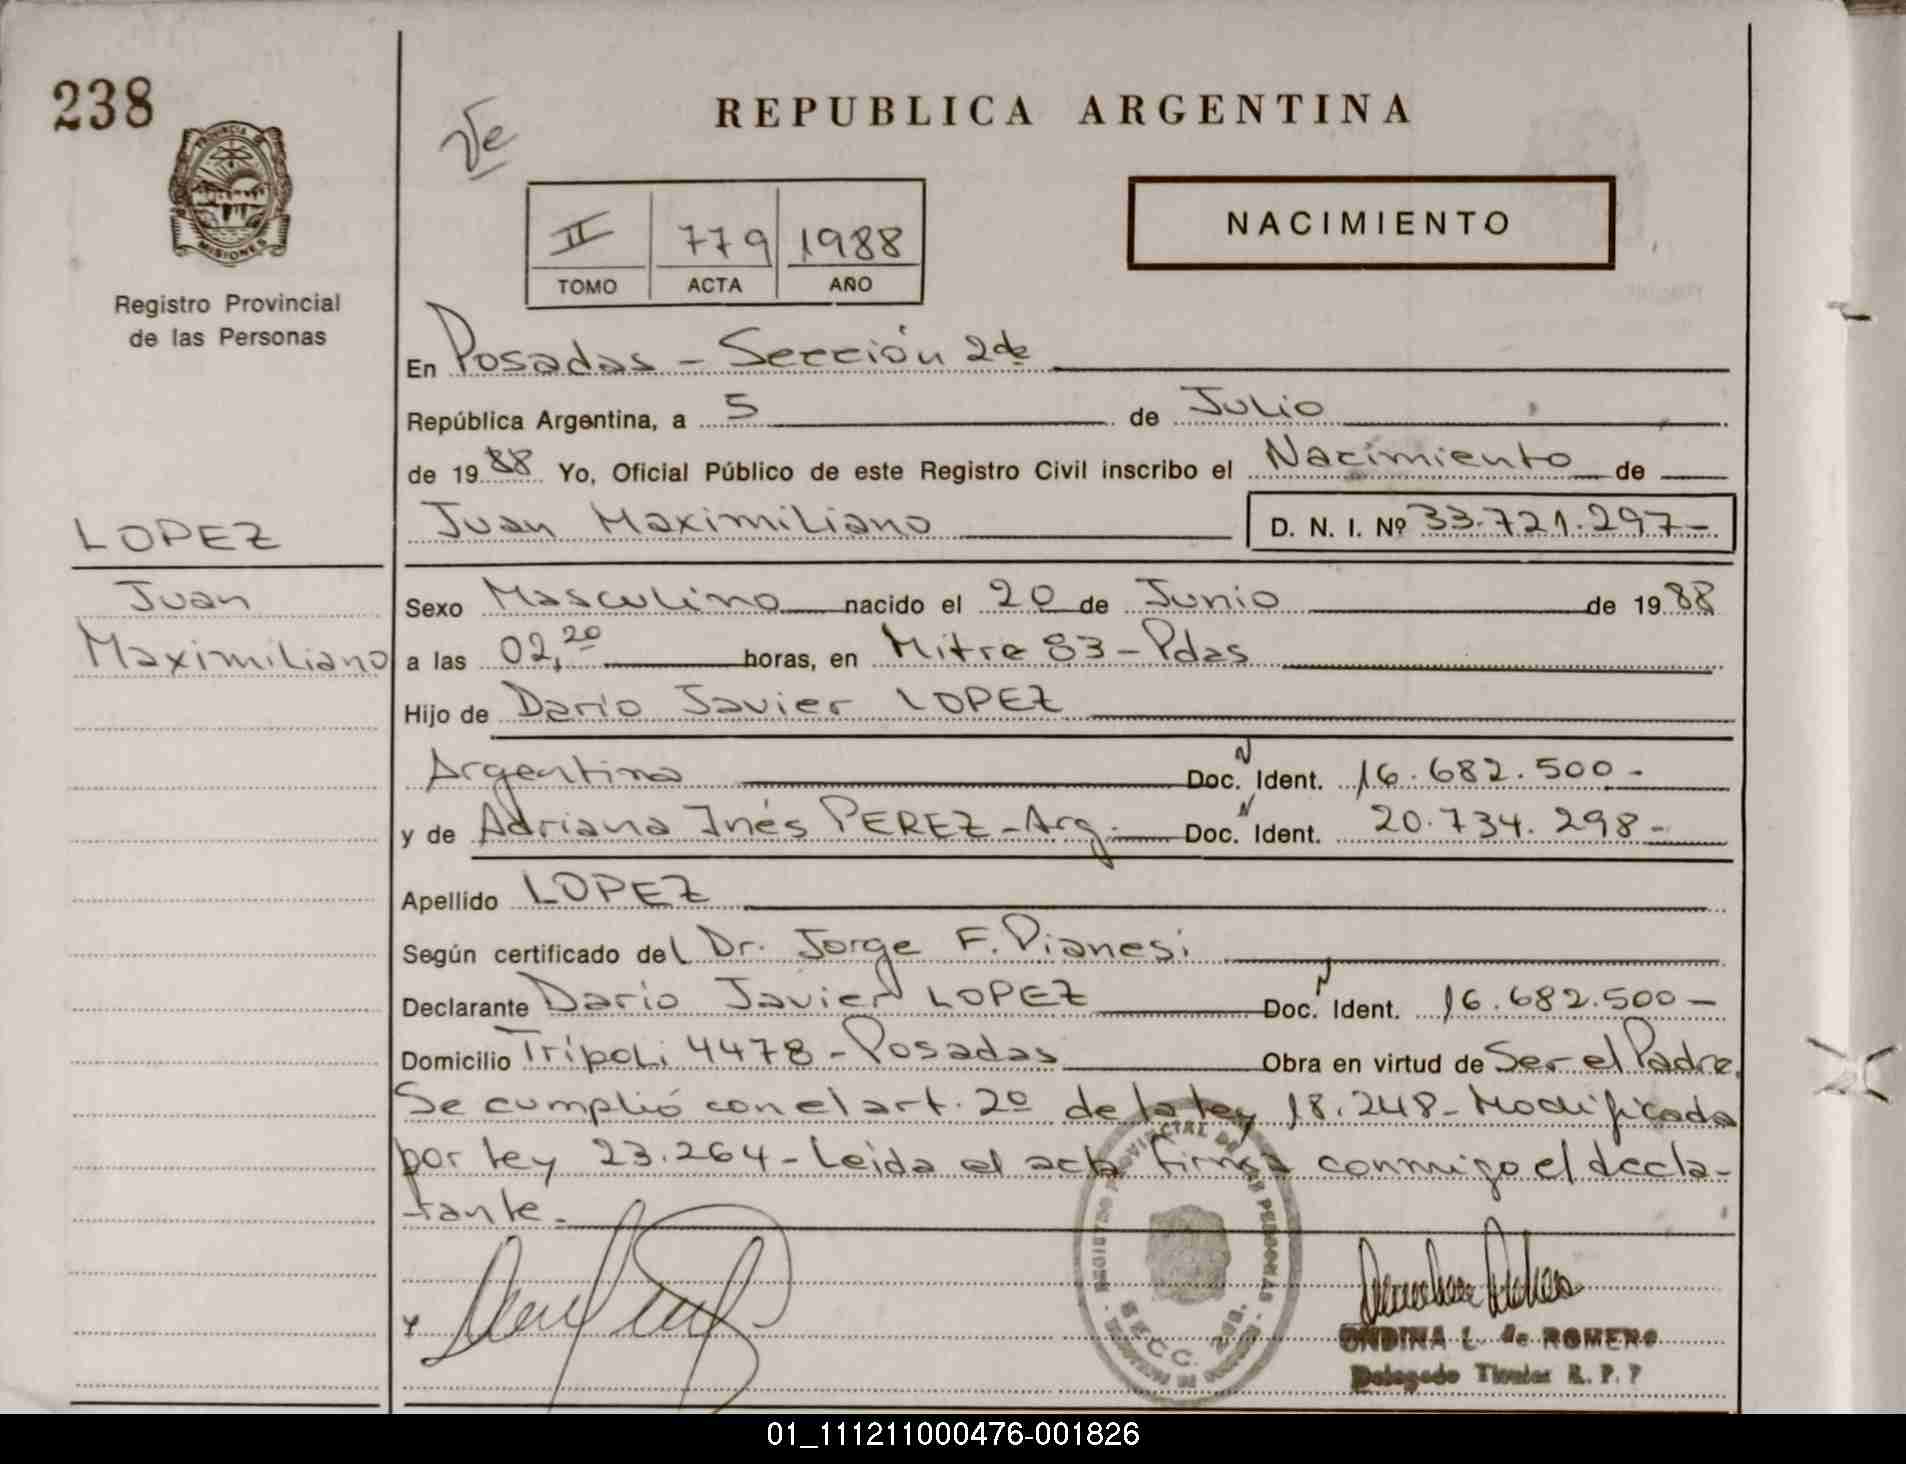 238
PROVINCIA DE
MISIONES
Registro Provincial
de las Personas
LOPEZ
Juan
Maximiliano
REPUBLICA ARGENTINA
II 779 1988
TOMO ACTA AÑO
NACIMIENTO
En Posadas - Sección 2da
República Argentina, a 5 de Julio
de 1988 Yo, Oficial Público de este Registro Civil inscribo el Nacimiento de
Juan Maximiliano D. N. I. Nº 33.721.297-
Sexo Masculino nacido el 20 de Junio de 1988
a las 02,20 horas, en Mitre 83 - Pdas
Hijo de Darío Javier LOPEZ
Argentino Doc. Ident. 16.682.500-
y de Adriana Inés PEREZ - Arg. Doc. Ident. 20.734.298-
Apellido LOPEZ
Según certificado del Dr. Jorge F. Pianesi
Declarante Darío Javier LOPEZ Doc. Ident. 16.682.500-
Domicilio Trípoli 4478 - Posadas Obra en virtud de Ser el Padre.
Se cumplió con el art. 2º de la ley 18.248 - Modificada
por ley 23.264 - Leida el acta firma conmigo el decla-
rante.-
REGISTRO PROVINCIAL DE LAS PERSONAS
SECC. 2da.
ONDINA L. de ROMERO
Delegado Titular R. P. P
01_111211000476-001826